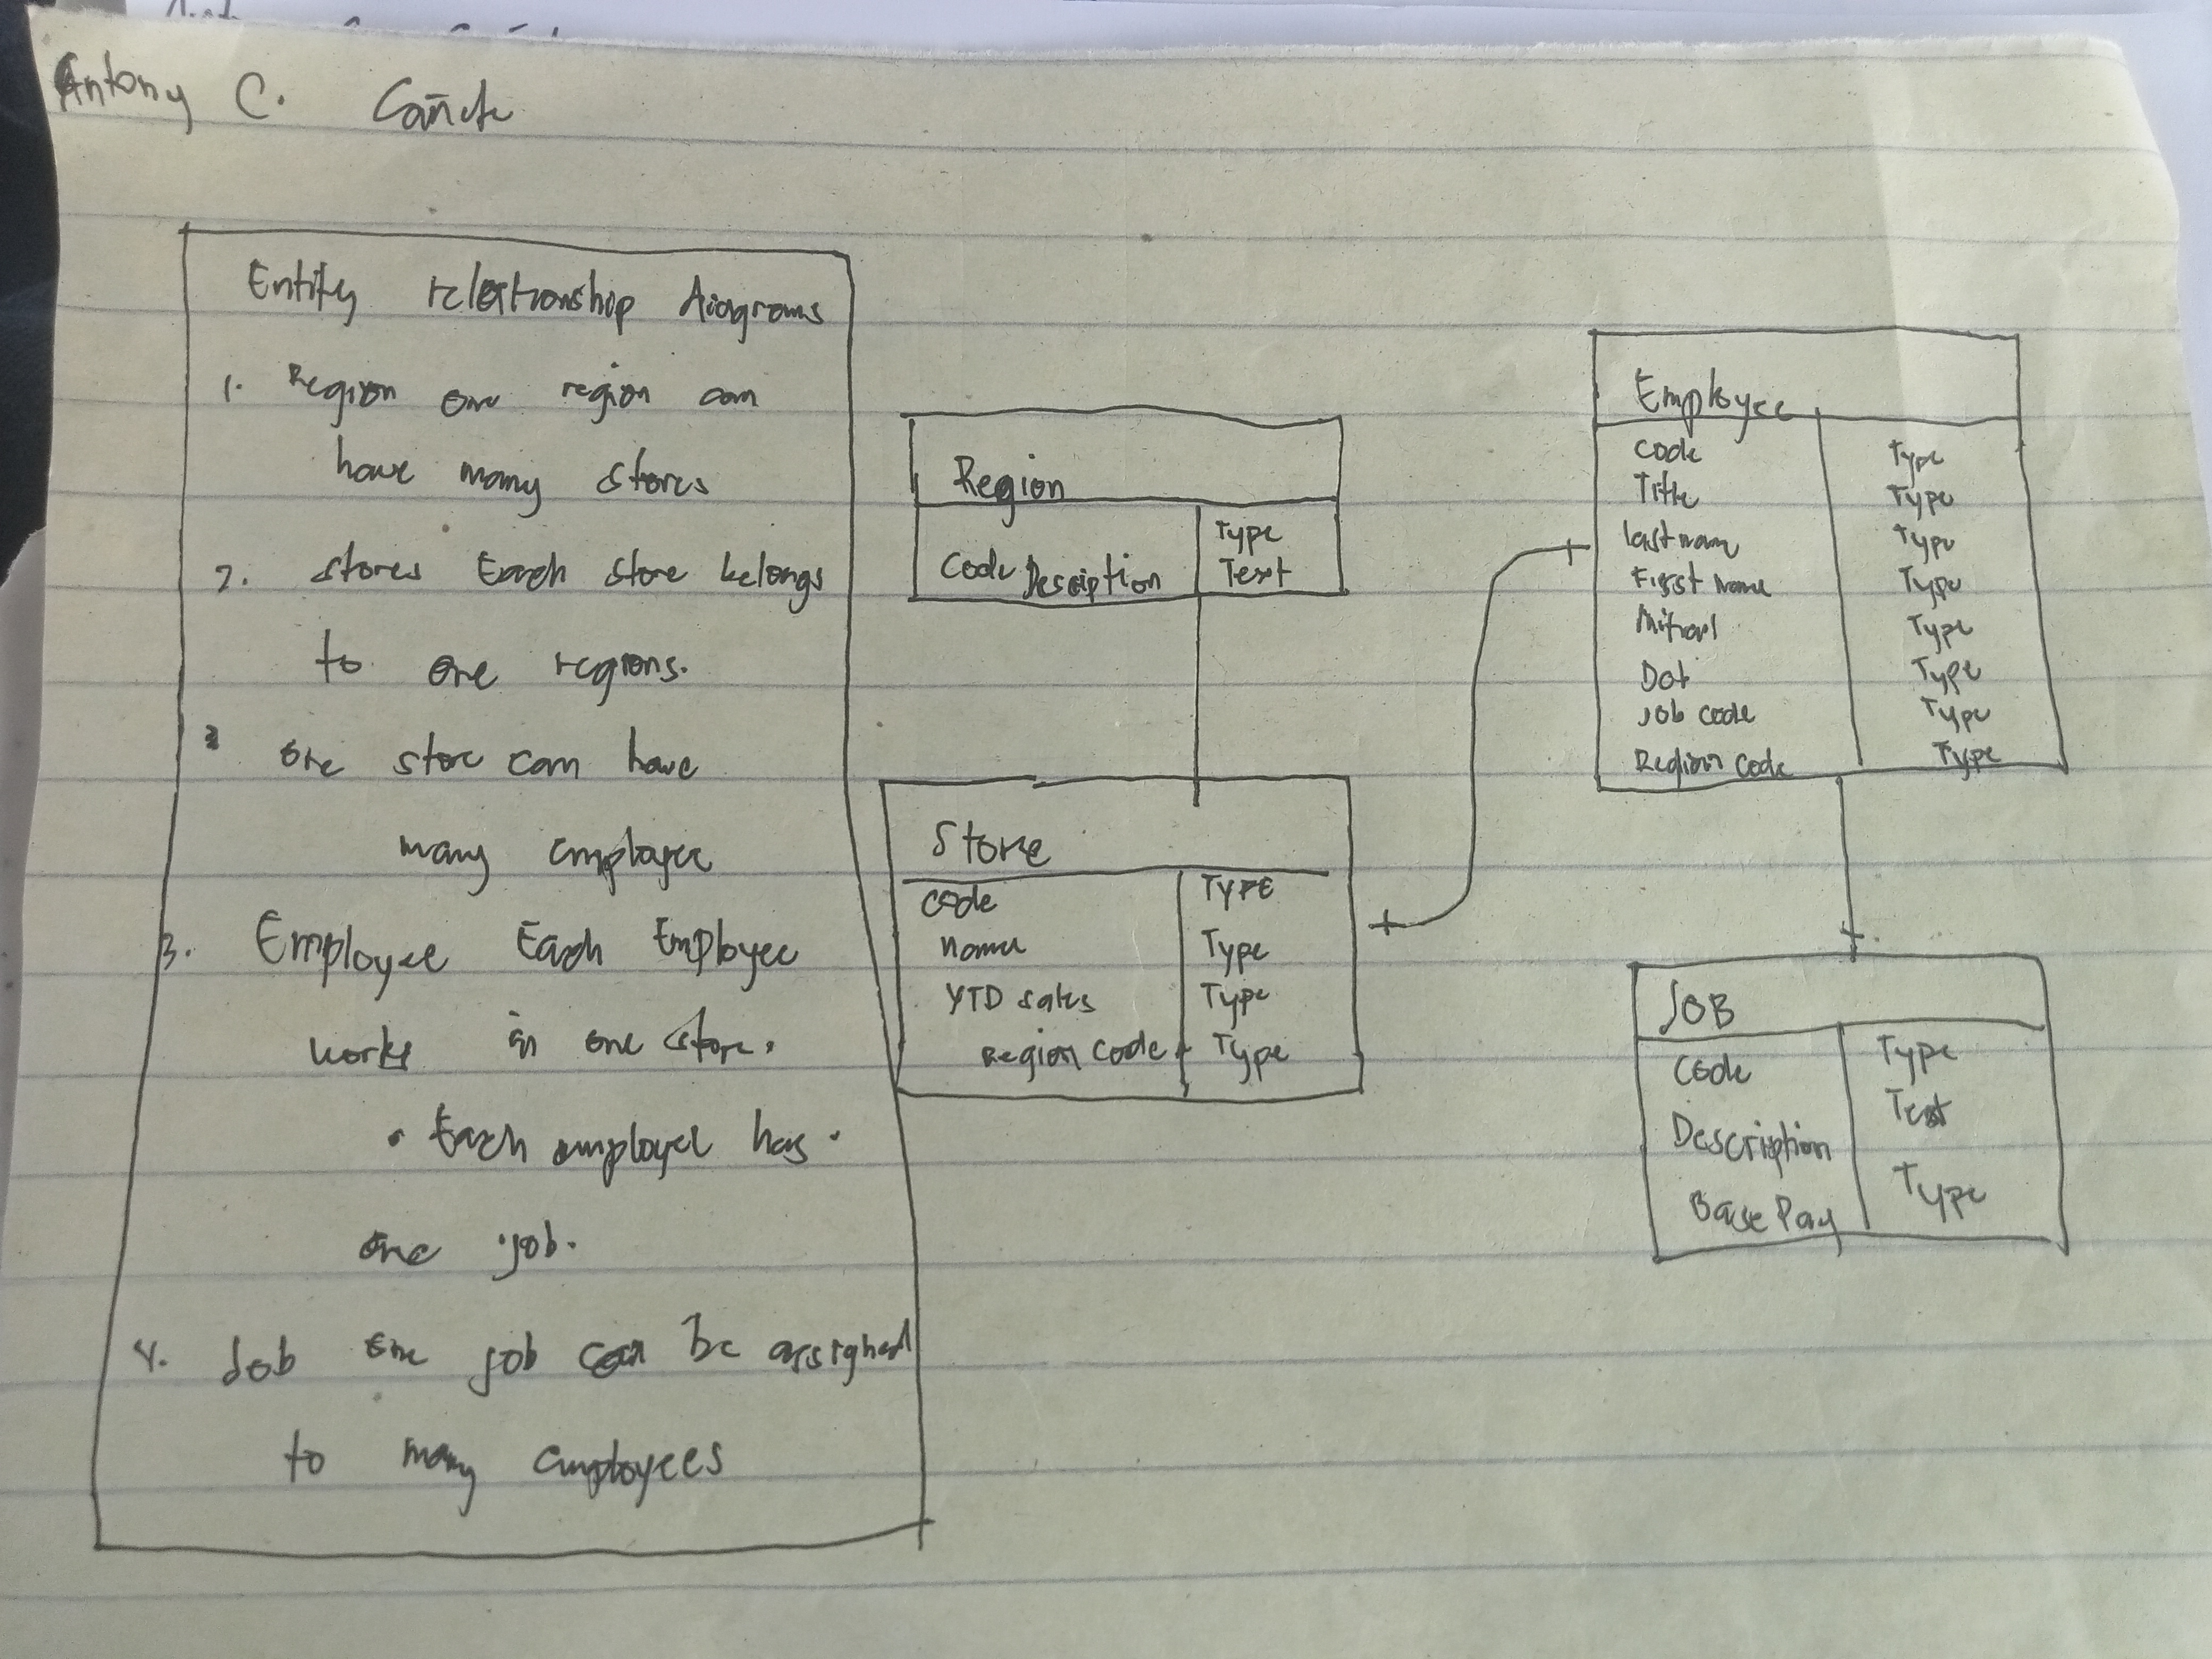 Antony C. Cañete
Entity relationship diagrams
1. Region one region can
have many stores
2. stores Each store belongs
to one regions.
one store can have
many employee
3. Employee Each Employee
works in one store.
• Each employee has •
one job.
4. Job one job can be assigned
to many employees
Region
Type
Code Desciption Text
Store
Code TYPE
name Type
YTD sales Type
Region Code Type
Employee
Code Type
Title Type
last nam Type
First Name Type
Initial Type
Dob Type
Job code Type
Region Code Type
JOB
Code Type
Description Text
Base Pay Type